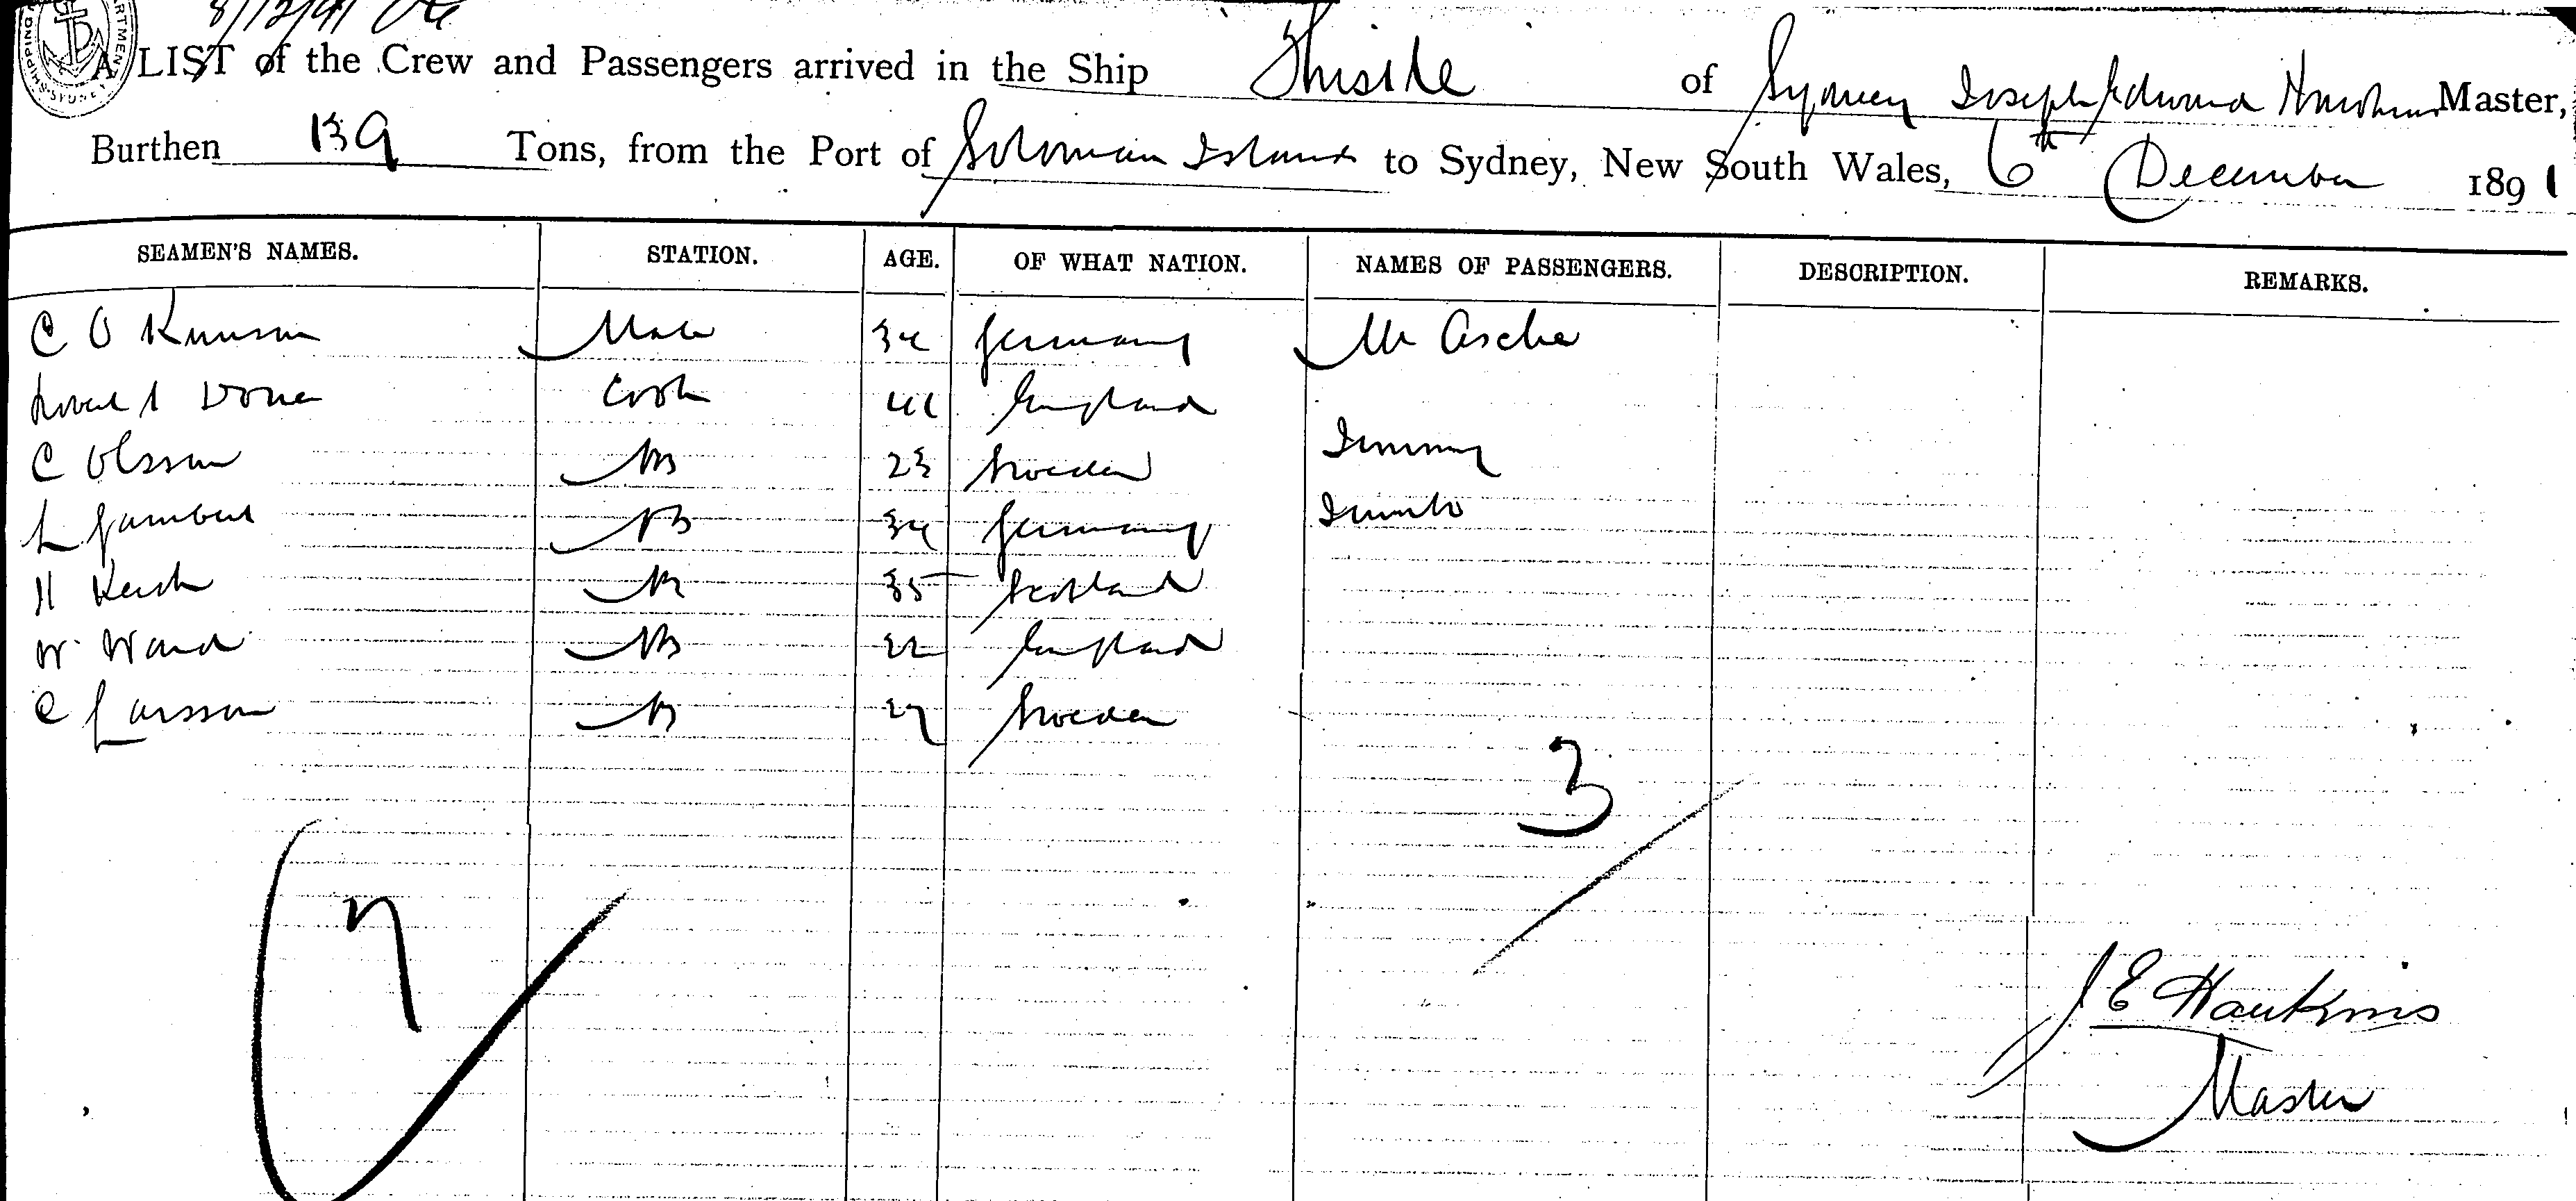 8/12/91
A LIST of the Crew and Passengers arrived in the Ship Thistle of Sydney Joseph Edward Hawkins Master,
Burthen 139 Tons, from the Port of Soloman Islands to Sydney, New South Wales, 6th December 1891
SEAMEN'S NAMES. STATION. AGE. OF WHAT NATION. NAMES OF PASSENGERS. DESCRIPTION. REMARKS.
C O Mate 34 Germany Mr Asche
Cook England
C Olsson AB 23 Sweden Jimmy
L AB 34 Germany
H AB 35 Scotland
W Ward AB 22 England
C Larsson AB 27 Sweden
3
7
J E Hawkins
Master